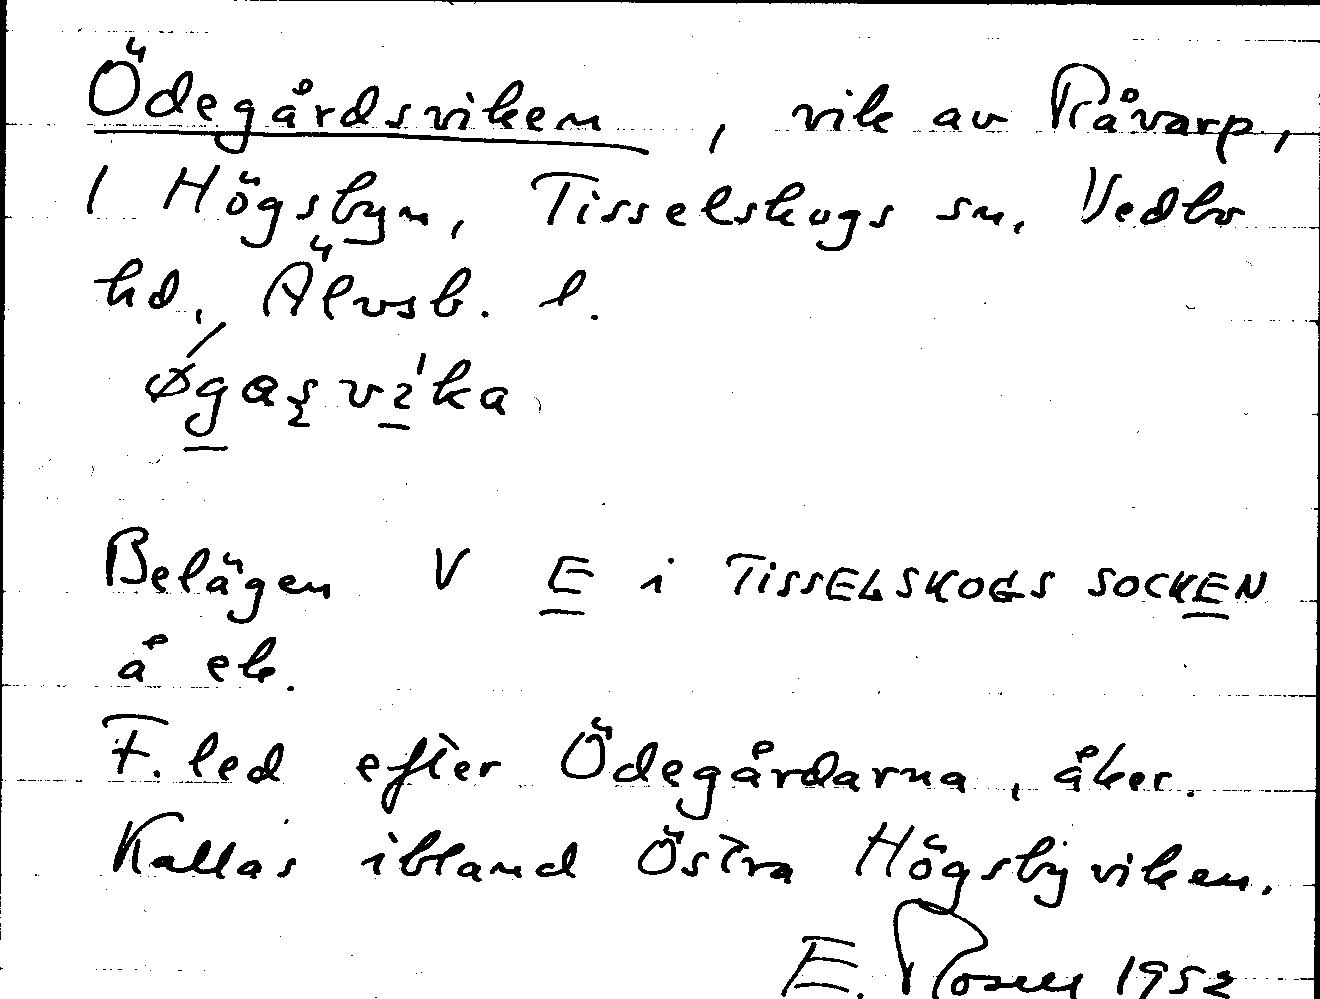 Ödegårdsviken, vik av Råvarp,
1 Högsbyn, Tisselskogs sn, Vedbo
hd, Älvsb. l.
Belägen V E i TISSELSKOGS SOCKEN
å ek.
F. led efter Ödegårdarna, åker.
Kallas ibland Östra Högsbyviken.
E. Rosell 1952